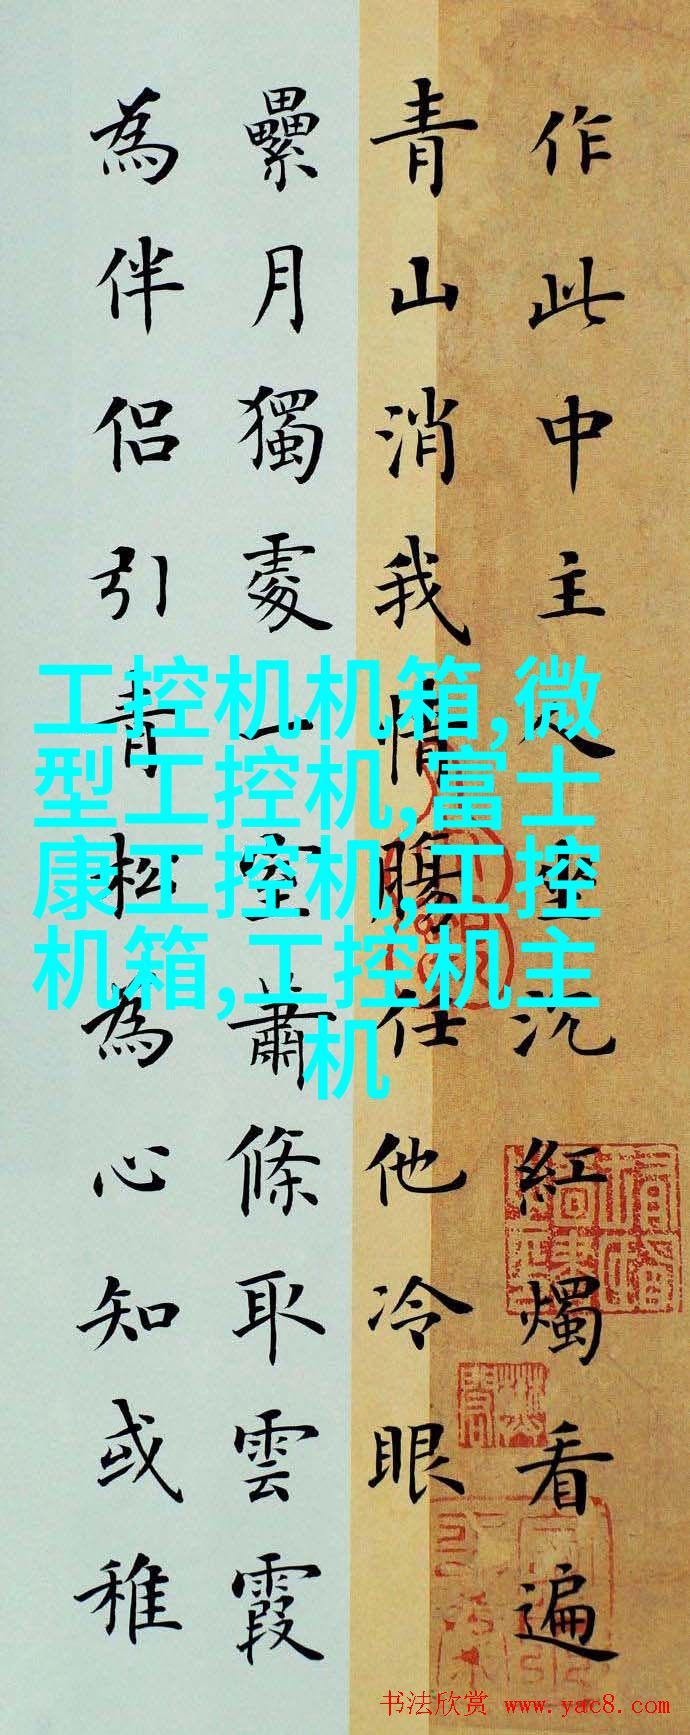 作此中主人坐沉紅燭看遍
青山消我情腸任他冷眼
纍月獨處一室蕭條取雲霞
為伴侣引青松為心知或稚
工控机机箱,微
型工控机,富士
康工控机,工控
机箱,工控机主
机
书法欣赏 www.yac8.com